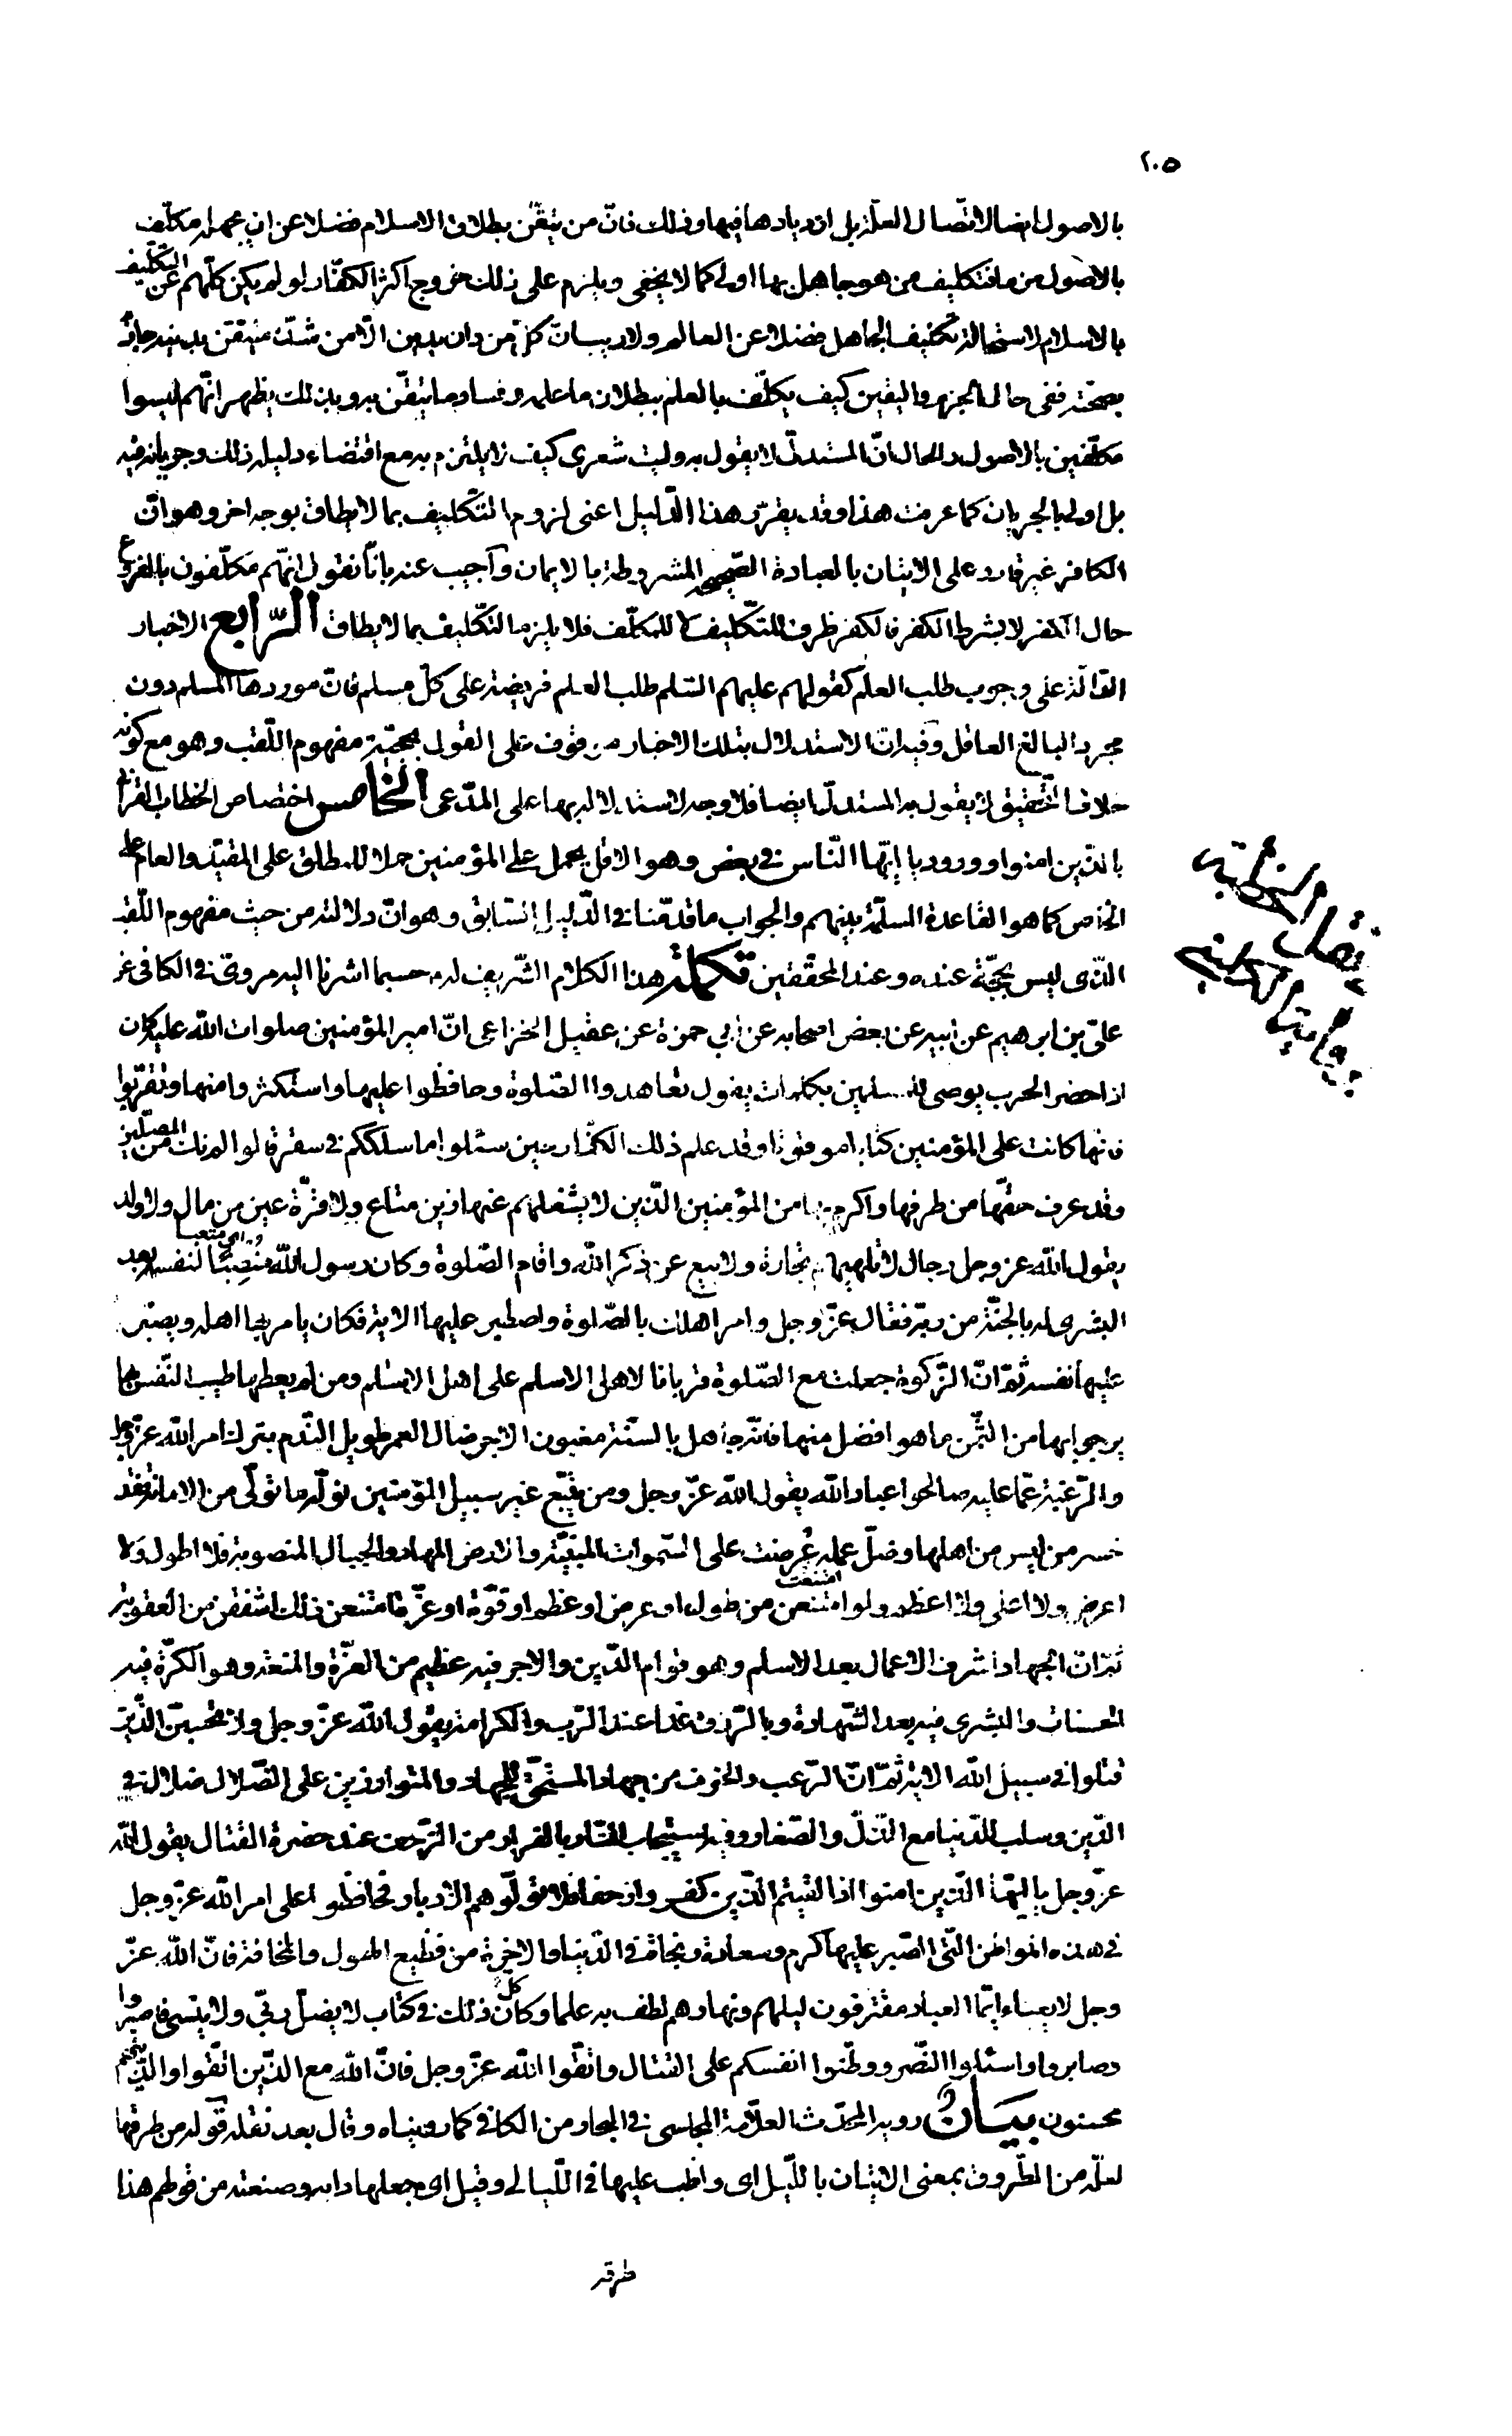 ٢٠٥
بالاصول ايضا لاتّصال العلّة بل ازديادها فيها وذلك فانّ من تيقّن بطلان الاسلام فضلا عن ان يجهله مكلّف
بالاصول من مافتكليف من هو جاهل بها اولى كما لا يخفى ويلزم على ذلك خروج اكثر الكفّار لو لم يكن كلّهم عن التكليف
بالاسلام لاستحالة تكليف الجاهل فضلا عن العالم ولا ريب انّ كلّ من دان بدين الّا من شذّ متيقّن بدينه جازم
بصحّته ففى حال الجزم واليقين كيف يكلّف بالعلم ببطلان ما علمه وفساد ما تيقّن به وبذلك يظهر انّهم ليسوا
مكلّفين بالاصول والحال انّ المستدلّ لا يقول به وليت شعرى كيف لا يلتزم به مع اقتضاء دليله ذلك وجريانه فيه
بل اولى بالجريان كما عرفت هذا وقد يقرّر هذا الدّليل اعنى لزوم التّكليف بما لا يطاق بوجه اخر وهو انّ
الكافر غير قادر على الاتيان بالعبادة الصّحيحة المشروطة بالايمان واجيب عنه بانّا نقول انّهم مكلّفون بالفروع
حال الكفر لا بشرط الكفر فالكفر ظرف للتّكليف لا للمكلّف فلا يلزم التّكليف بما لا يطاق الرّابع الاخبار
الدّالة على وجوب طلب العلم كقولهم عليهم السّلم طلب العلم فريضة على كلّ مسلم فانّ موردها المسلم دون
مجرد البالغ العاقل وفيه انّ الاستدلال بتلك الاخبار موقوف على القول بحجيّة مفهوم اللّقب وهو مع كونه
خلاف التّحقيق لا يقول به المستدلّ ايضا فلا وجه لاستدلاله بها على المدّعى الخامس اختصاص الخطاب القرانى
بالّذين امنوا وورود يا ايّها النّاس فى بعض وهو الاقل يحمل على المؤمنين حملا للمطلق على المقيّد والعام على
الخاص كما هو القاعدة المسلّمة بينهم والجواب ما قدّمنا فى الدّليل السّابق وهو انّ دلالته من حيث مفهوم اللّقب
الّذى ليس بحجّة عنده وعند المحقّقين تكملة هذا الكلام الشّريف له حسبما اشرنا اليه مروىّ فى الكافى عن
علىّ بن ابرهيم عن ابيه عن بعض اصحابه عن ابي حمزة عن عقيل الخزاعى انّ امير المؤمنين صلوات اللّه عليه كان
اذا حضر الحرب يوصى للمسلمين بكلمات يقول تعاهدوا الصّلوة وحافظوا عليها واستكثروا منها وتقرّبوا
فانّها كانت على المؤمنين كتابا موقوتا وقد علم ذلك الكفّار حين سئلوا ما سلككم فى سقر قالوا لم نك من المصلّين
وقد عرف حقّها من طرقها واكرم بها من المؤمنين الّذين لا يشغلهم عنها زين متاع ولا قرّة عين من مال ولا ولد
يقول اللّه عزّ وجل رجال لا تلهيهم تجارة ولا بيع عن ذكر اللّه واقام الصّلوة وكان رسول اللّه مُنصِبًا اى متعبا لنفسه بعد
البشرى له بالجنّة من ربّه فقال عزّ وجل وامر اهلك بالصّلوة واصطبر عليها الاية فكان يامر بها اهله ويصبّر
عليها نفسه ثمّ انّ الزّكوة جعلت مع الصّلوة قربانا لاهل الاسلم على اهل الاسلم ومن لم يعطها طيب النّفس بها
يرجو بها من الثّمن ما هو افضل منها فانّه جاهل بالسّنّة مغبون الاجر ضال العمر طويل النّدم بترك امر اللّه عزّ وجل
والرّغبة عمّا عليه صالحوا عباد اللّه يقول اللّه عزّ وجل ومن يتّبع غير سبيل المؤمنين نولّه ما تولّى من الامانة فقد
خسر من ليس من اهلها وضلّ عمله عُرضت على السّموات المبنيّة والارض المهاد والجبال المنصوبة فلا اطول ولا
اعرض ولا اعلى ولا اعظم ولو امتنعن امتنعت من طول او عرض او عظم او قوّة او عزّة امتنعن ذلك اشفقن من العقوبة
ثمّ انّ الجهاد اشرف الاعمال بعد الاسلم وهو قوام الدّين والاجر فيه عظيم من العزّة والمنعة وهو الكرّة فيه
الحسنات والبشرى فيه بعد الشّهادة وبالرّزق غدا عند الرّب والكرامة يقول اللّه عزّ وجل ولا تحسبنّ الّذين
قتلوا فى سبيل اللّه الاية ثمّ انّ الرّعب والخوف من جهاد المستحقّ للجهاد والمتوازرين على الضّلال ضلال فى
الدّين وسلب للدّنيا مع الذّلّ والصّغار وفيه استيجاب للنّار بالفرار من الزّحف عند حضرة القتال يقول اللّه
عزّ وجل يا ايّها الّذين امنوا اذا لقيتم الّذين كفروا زحفا فلا تولّوهم الادبار فحافظوا على امر اللّه عزّ وجل
فى هذه المواطن الّتى الصّبر عليها كرم وسعادة ونجاة فى الدّنيا والاخرة من فظيع الهول والمخافة فانّ اللّه عزّ
وجل لا يعباء بما العباد مقترفون ليلهم ونهارهم لطف به علما وكان كلّ ذلك فى كتاب لا يضلّ ربّى ولا ينسى فاصبروا
وصابروا واسئلوا النّصر ووطّنوا انفسكم على القتال واتّقوا اللّه عزّ وجل فانّ اللّه مع الّذين اتّقوا والّذين هم
محسنون بيَانٌ رويه المحدّث العلّامة المجلسى فى البحار من الكافى كما رويناه وقال بعد نقله قوله من طرقها
لعلّه من الطّروق بمعنى الاتيان باللّيل اى واظب عليها فى اللّيالى وقيل اى جعلها دابه وصنعته من قولهم هذا
طرقة